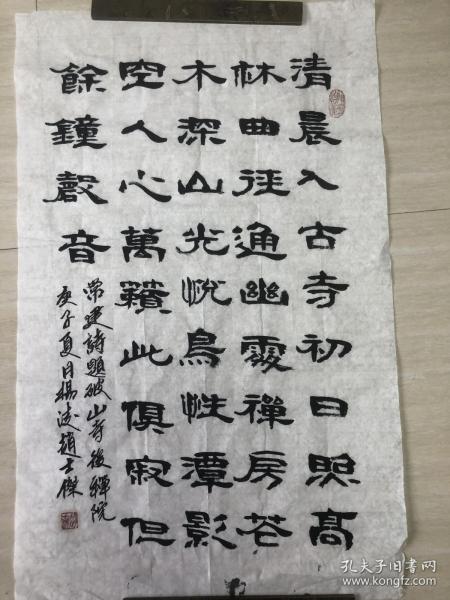 清晨入古寺初日照高
林曲径通幽處禪房花
木深山光悅鳥性潭影
空人心萬籟此俱寂但
餘鐘磬音
常建詩題破山寺後禪院
庚子夏日 趙士傑
孔夫子旧书网
www.kongfz.com